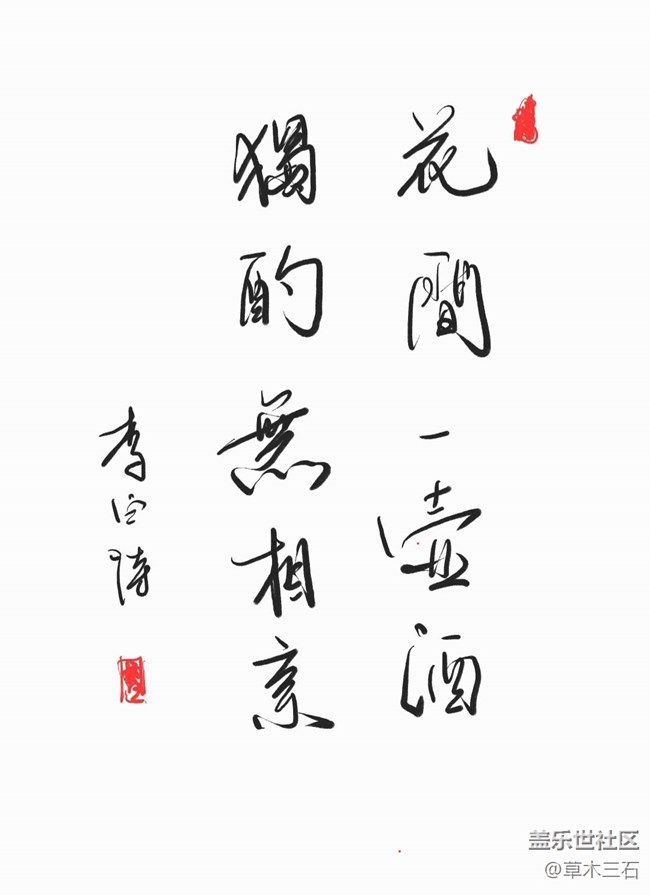 花間一壺酒
獨酌無相亲
李白詩
盖乐世社区
@草木三石